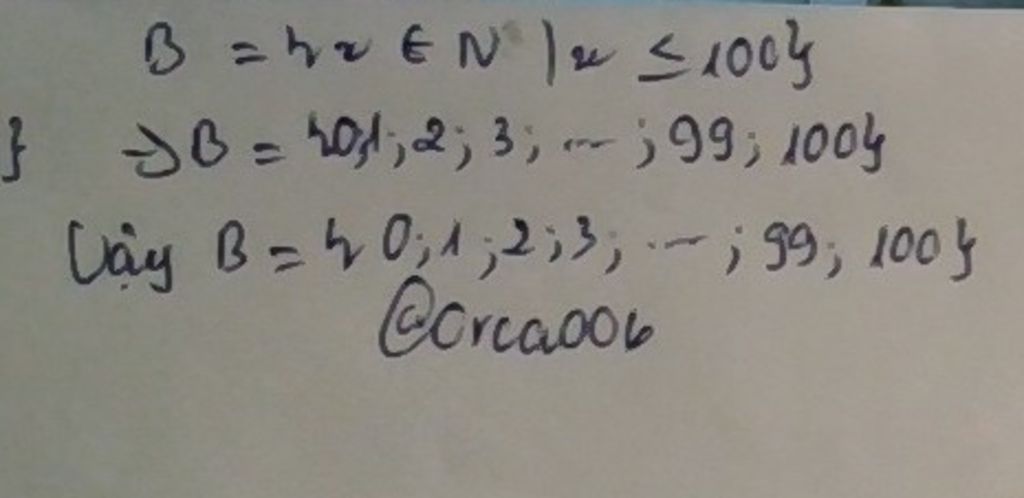 B = {x ∈ N | x ≤ 100}
} ⇒ B = {0,1; 2; 3; ...; 99; 100}
Vậy B = {0; 1; 2; 3; ...; 99; 100}
@Orca006